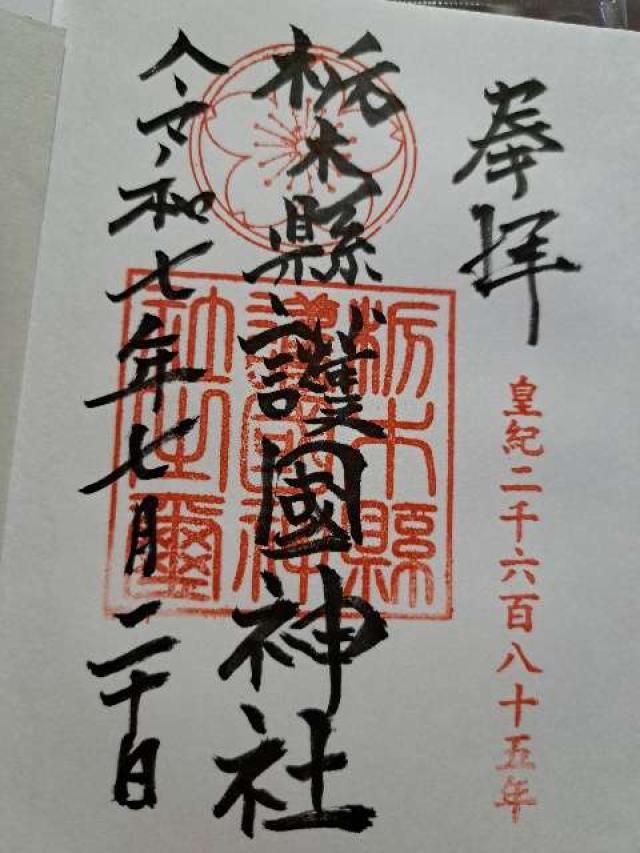 奉拝
皇紀二千六百八十五年
栃木縣護國神社
栃木縣
護國神
社之璽
令和七年七月二十日